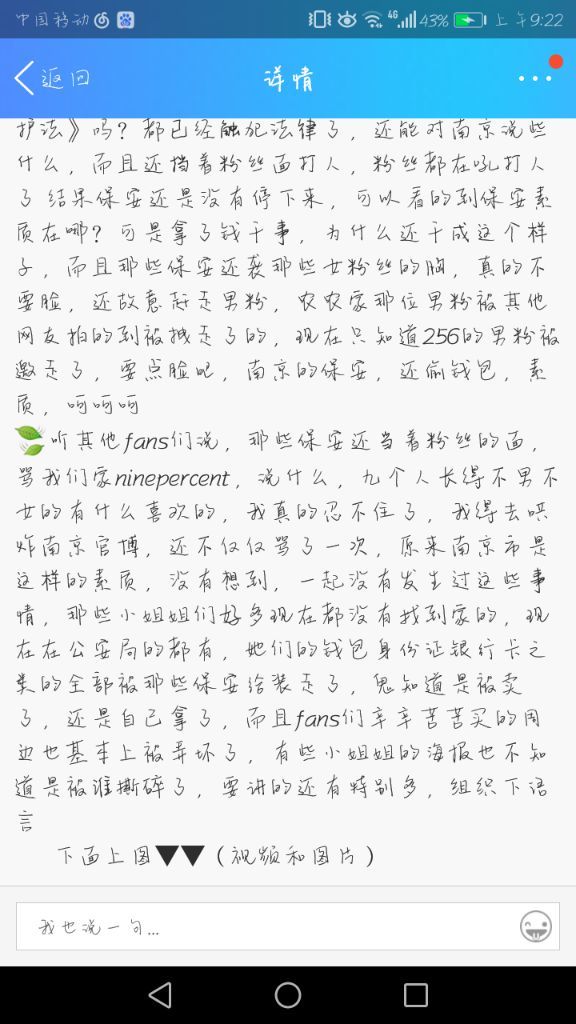 中国移动 4G 43% 上午9:22
返回 详情
护法》吗？都已经触犯法律了，还能对南京说些
什么，而且还挡着粉丝面打人，粉丝都在吼打人
了 结果保安还是没有停下来，可以看的到保安素
质在哪？可是拿了钱干事，为什么还干成这个样
子，而且那些保安还袭那些女粉丝的胸，真的不
要脸，还故意赶走男粉，农农家那位男粉被其他
网友拍的到被拽走了的，现在只知道256的男粉被
邀走了，要点脸吧，南京的保安，还偷钱包，素
质，呵呵呵
听其他fans们说，那些保安还当着粉丝的面，
骂我们家ninepercent，说什么，九个人长得不男不
女的有什么喜欢的，我真的忍不住了，我得去哄
炸南京官博，还不仅仅骂了一次，原来南京市是
这样的素质，没有想到，一起没有发生过这些事
情，那些小姐姐们好多现在都没有找到家的，现
在在公安局的都有，她们的钱包身份证银行卡之
类的全部被那些保安给装走了，鬼知道是被卖
了，还是自己拿了，而且fans们辛辛苦苦买的周
边也基本上被弄坏了，有些小姐姐的海报也不知
道是被谁撕碎了，要讲的还有特别多，组织下语
言
下面上图▼▼（视频和图片）
我也说一句...